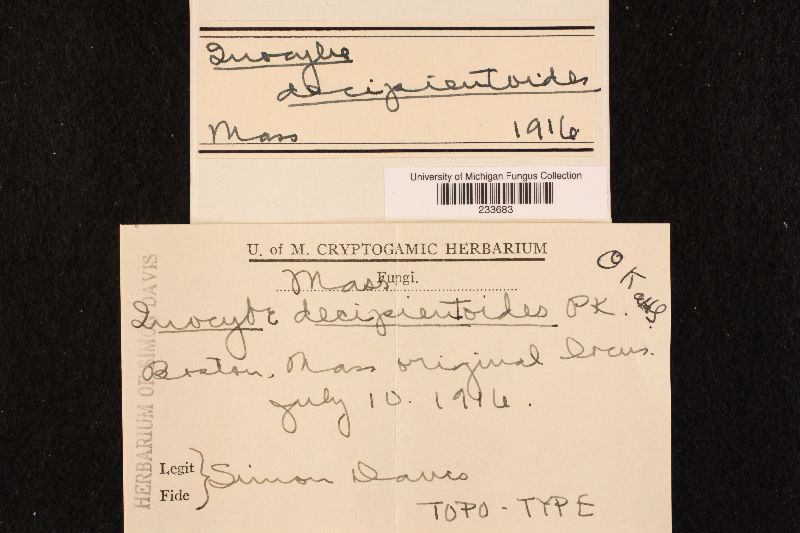 Inocybe
decipientoides
Mass 1916
University of Michigan Fungus Collection
233683
U. of M. CRYPTOGAMIC HERBARIUM
Fungi.
Mass
Inocybe decipientoides PK.
OK
Boston, Mass original locus.
July 10. 1916.
Legit
Fide
Simon Davis
TOPO-TYPE
HERBARIUM OF SIMON DAVIS